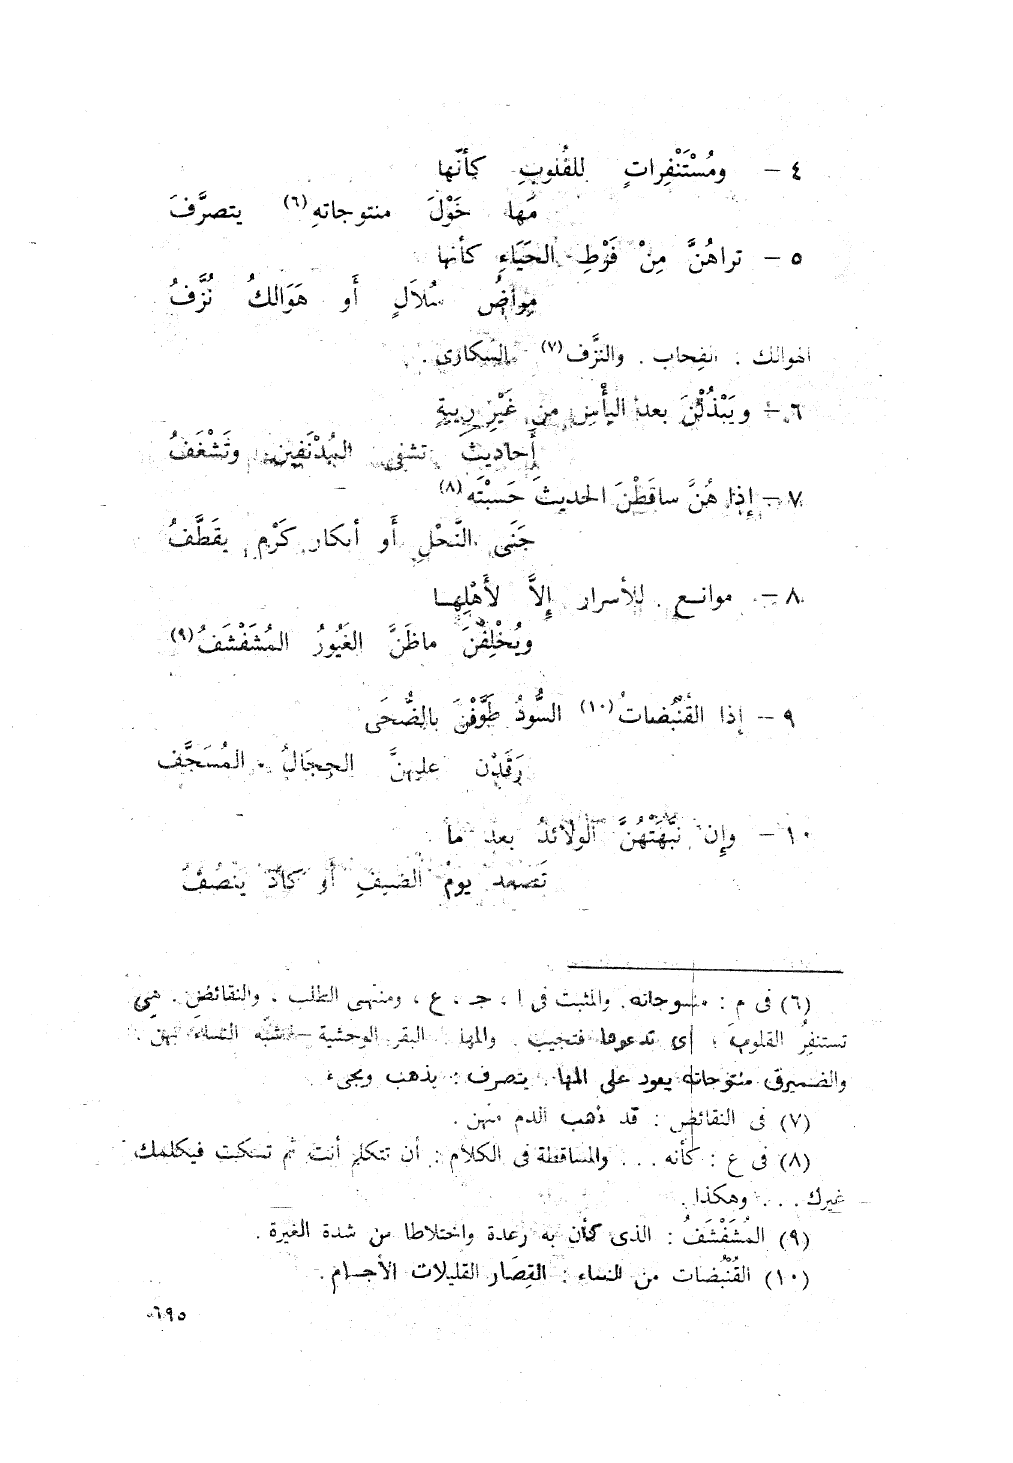 ٤ – ومُسْتَنْفِراتٍ للقُلوبِ كأنّها
مَها حَوْلَ منتوجاتهِ(٦) يتصرَّفَ
٥ – تراهُنَّ مِنْ فَرْطِ الحَيَاءِ كأنها
مِراضُ سُلاَلٍ أَو هَوَالكُ نُزَّفُ
الهوالك : القِحاب . والنزَّف(٧) السكارى .
٦ – ويَبْذُلْنَ بعد اليأْسِ من غَيْرِ رِيبةٍ
أَحاديثَ تشفى المُدْنَفين وتَشْغَفُ
٧ – إِذا هُنَّ ساقَطْنَ الحديثَ حَسبْتَه(٨)
جَنَى النَّحْلِ أَو أبكار كَرْمٍ يقَطَّفُ
٨ – موانــع للأسرار إِلاَّ لأَهْلِهــا
ويُخْلِفْنَ ماظَنَّ الغَيُورُ المُشَفْشَفُ(٩)
٩ – إذا القُنْبُضات(١٠) السُّودُ طَوَّفْنَ بالضُّحَى
رَقَدْن عليهنَّ الحِجَالُ المُسَجَّف
١٠ – وإِن نَبَّهَتْهُنَّ الولائدُ بعد ما
تَصعد يومُ الصيفِ أَو كادَ ينصُفُ
(٦) فى م : منسوجاته. والمثبت فى ا ، جـ ، ع ، ومنتهى الطلب ، والنقائض . هى
تستنفِرُ القلوبَ ؛ أى تدعوها فتجيب . والمها : البقر الوحشية – تشبّه النساء بهن .
والضميرفى منتوجاته يعود على المها. يتصرف : يذهب ويجىء
(٧) فى النقائض : قد ذهب الدم منهن .
(٨) فى ع : كأنه . . . والمساقطة فى الكلام : أن تتكلم أنت ثم تسكت فيكلمك
غيرك . . . وهكذا .
(٩) المُشَفْشَفُ : الذى كأن به رعدة واختلاطا من شدة الغيرة .
(١٠) القُنْبُضات من النساء : القِصَار القليلات الأجسام .
٦٩٥